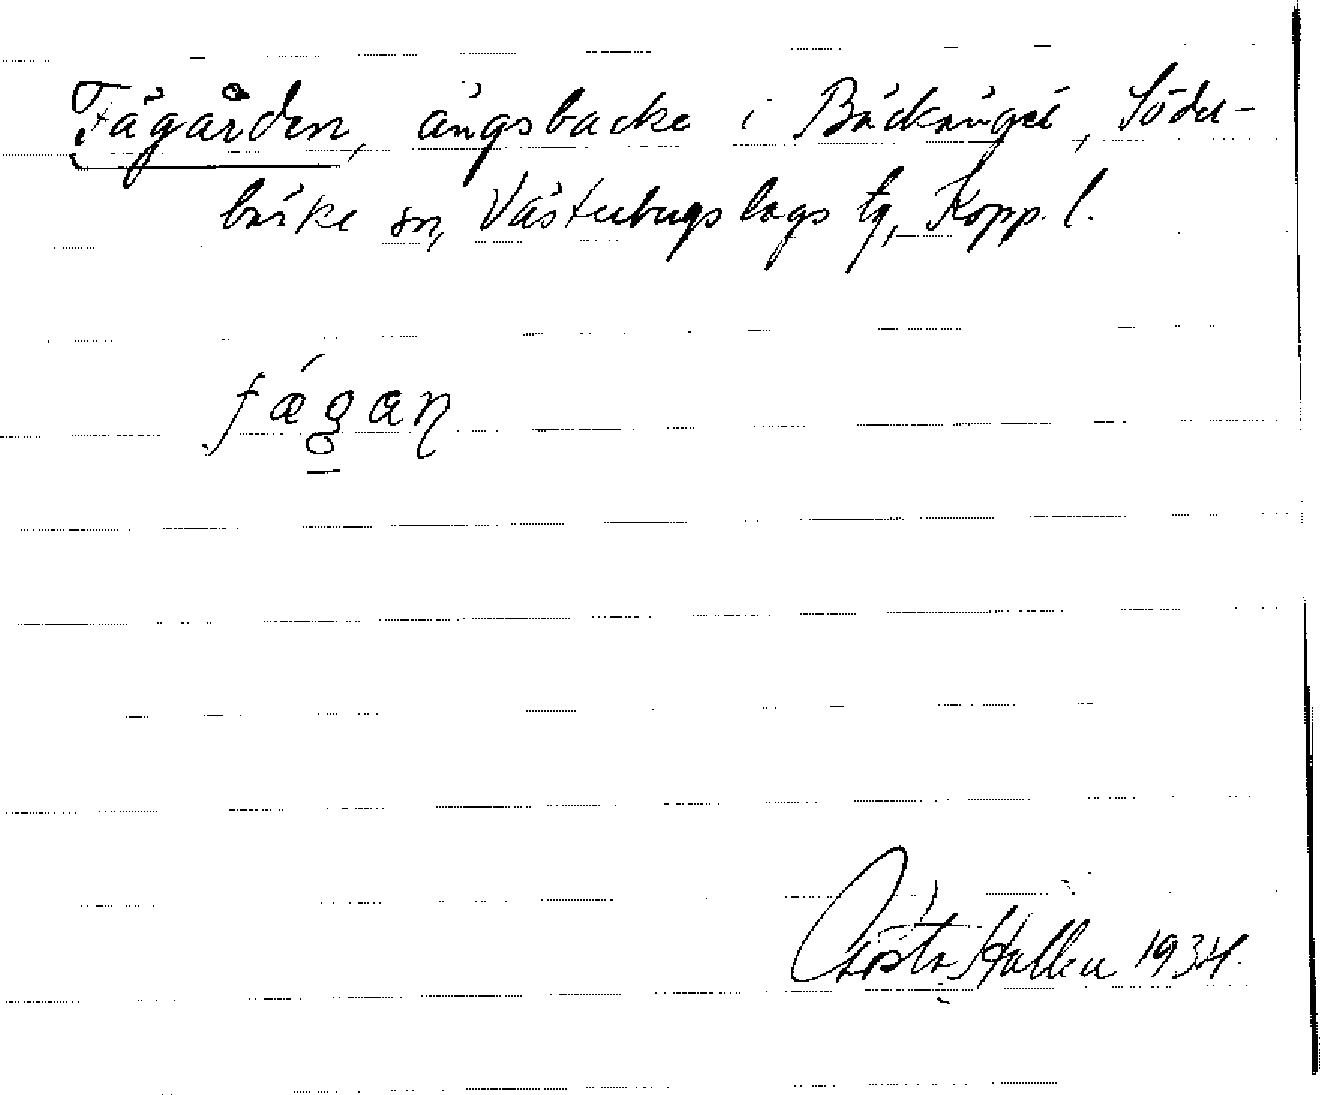 Fägården, ängsbacke i Bäckänget, Söder-
bärke sn, Västerbergslags tg, Kopp. l.
fǽgaɳ
Gösta Hallén 1934.